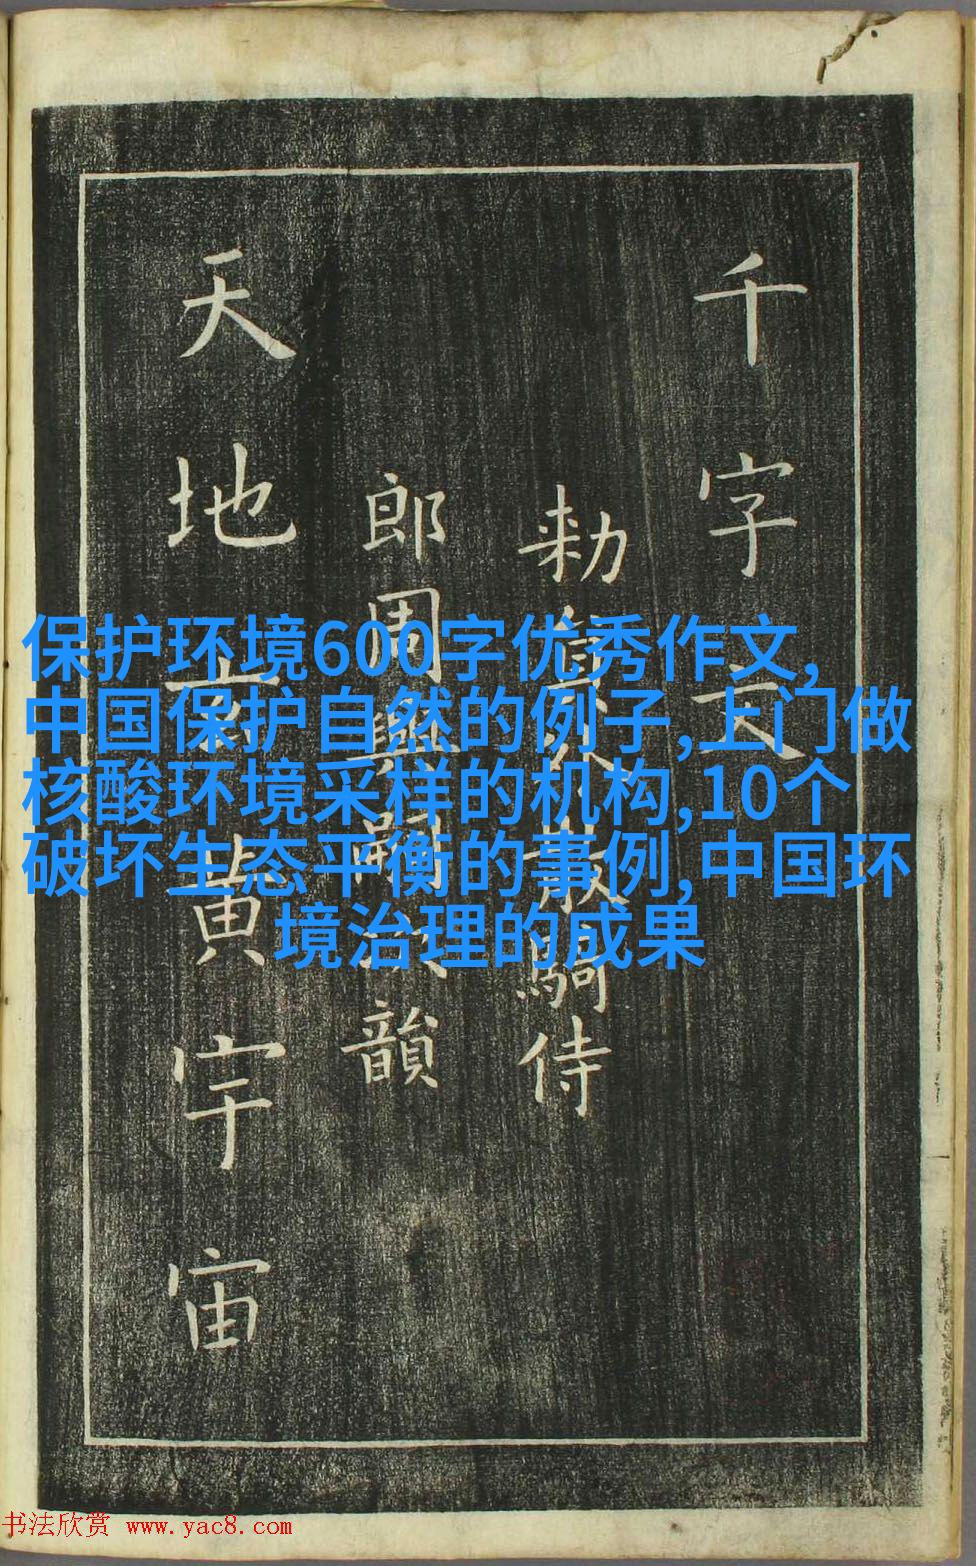 千字文
勑員外散騎侍
郎周興嗣次韻
天地玄黄宇宙
保护环境600字优秀作文,
中国保护自然的例子,上门做
核酸环境采样的机构,10个
破坏生态平衡的事例,中国环
境治理的成果
书法欣赏 www.yac8.com